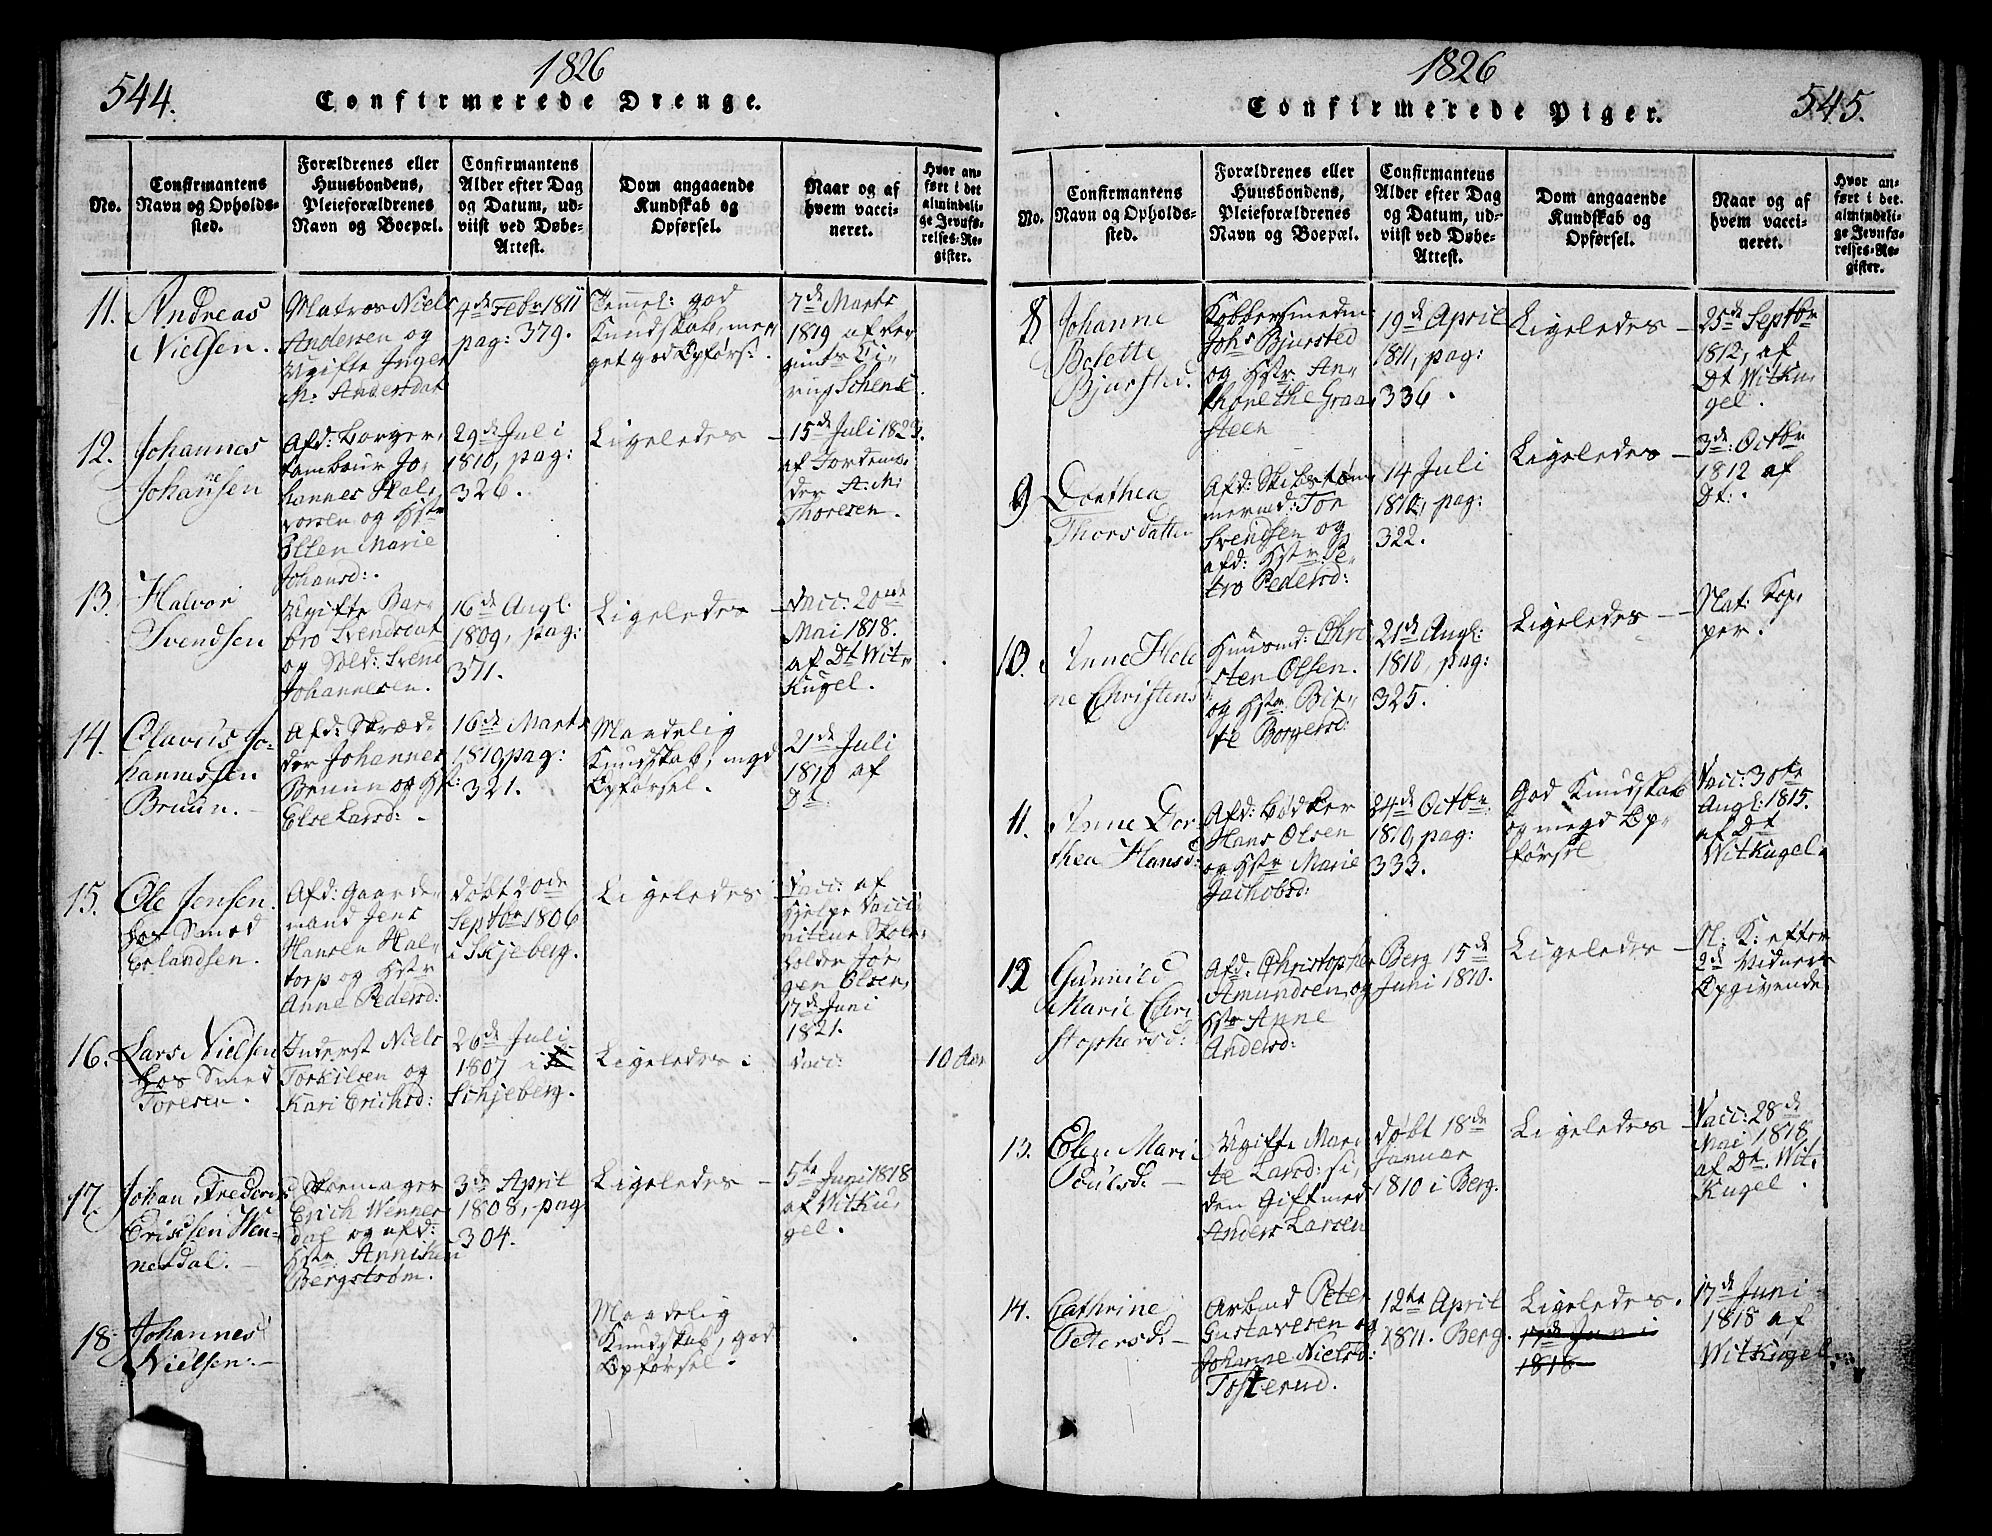 544.
1826
Confirmerede Drenge.
No.
Confirmantens
Navn og Opholds-
sted.
Forældrenes eller
Huusbondens,
Pleieforældrenes
Navn og Boepæl.
Confirmantens
Alder efter Dag
og Datum, ud-
viist ved Døbe-
Attest.
Dom angaaende
Kundskab og
Opførsel.
Naar og af
hvem vacci-
neret.
Hvor an-
ført i det
almindeli-
ge Jevnfø-
relses-Re-
gister.
11.
Andreas
Nielsen.
Matros Niels
Andersen og
Ugifte Inger
M: Andersdat
4de Febr 1811
pag: 379.
Temmel: god
Kundskab, me-
get god Opførs:
7de Marts
1819 af
Schenk
12.
Johannes
Johannesen
Afd: Borger,
tambour Jo-
hannes Hal-
vorsen og Hstr
Ellen Marie
Johansd:.
29de Juli
1810, pag:
326.
Ligeledes —
15de Juli 182
af Jordemo-
der A: M:
Thoresen.
13.
Halvor
Svendsen
Ugifte Bar-
bro Svendsdat
og Sold: Svend
Johannesen.
16de Augl:
1809, pag:
371.
Ligeledes —
Vacc: 20nde
Mai 1818.
af Dt Wit-
Kugel.
14.
Olavus Jo-
hannessen
Bruun. —
Afd: Skræd-
der Johannes
Bruun og Hst:
Else Larsd: .
16de Marts
1810, pag:
321.
Maadelig
Kundskab, megd
Opførsel.
21de Juli
1810 af
Dt
15.
Ole Jensen.
hos Smed
Erlandsen.
Afd: Gaard-
mand Jens
Hansen Hal-
torp og Hstr
Anne Pedersd:
døbt 20de
Septbr 1806
i Skjeberg.
Ligeledes
Vacc: af
Hjelpe Vacci
niteur Skole-
holder Jør-
gen Olsen,
17de Juni
1821.
16.
Lars Nielsen
hos Smed
Toresen.
Inderst Niels
Torkilsen og
Kari Erichsd:
26de Juli
1807 i
Schjeberg.
Ligeledes
Vacc:
10 Aar
17.
Johan Frederik
Erichsen Wen-
nesdal. —
Skomager
Erich Wennes
dal og afd:
Hstr Anniken
Bergstrøm.
3de April
1808, pag
304.
Ligeledes —
5te Juni 1818
af Witku,
gel.
18.
Johannes
Nielsen. —
Maadelig
Kundskab, god
Opførsel.
1826
545.
Confirmerede Piger.
No.
Confirmantens
Navn og Opholds-
sted.
Forældrenes eller
Huusbondens,
Pleieforældrenes
Navn og Boepæl.
Confirmantens
Alder efter Dag
og Datum, ud-
viist ved Døbe-
Attest.
Dom angaaende
Kundskab og
Opførsel.
Naar og af
hvem vacci-
neret.
Hvor an-
ført i det
almindeli-
ge Jevnfø-
relses-Re-
gister.
8
Johanne
Bolette
Bjursted.
Kobbersmedm
Johs Bjursted
og Hstr An-
thonethe Graa
steen
19de April
1811, pag:
336.
Ligeledes —
25de Septbr
1812, af
Dt Witku,
gel.
9
Dorthea
Thorsdatter
Afd: Skibstøm-
mermd: Tor
Svendsen og
afd: Hstr Pe-
tro Pedersd:
14 Juli
1810, pag:
322.
Ligeledes —
3de: Octbr
1812 af
Dt: .
10.
Anne Hele
ne Christens
Huusmd: Chri
sten Olsen.
og Hstr Bir-
te Borgersd:
21de Augl:
1810, pag:
325.
Ligeledes —
Nat: Kop,
per.
11.
Anne Dor
thea Hansd:
Afd: Bødker
Hans Olsen
og Hstr Marie
Jachobsd:
24de Octbr
1810, pag:
333.
God Kundskab
og megd Op-
førsel
Vacc: 30te
Augl: 1815.
af Dt
Witkugel.
12
Gunnild
Marie Chri
stophersd:
Afd. Christopher
Amundsen, og
Hstr Anne
Andersd:
Berg 15de
Juni 1810.
Ligeledes —
N: K: efter
2de Vidners
Opgivende
13.
Elen Marie
Poulsd: —
Ugifte Mari
te Larsd: si,
den Gift med
Anders Larsen
døbt 18de
Januar
1810 i Berg.
Ligeledes —
Vacc: 28de
Mai 1818
af Dt. Wit-
Kugel.
14.
Cathrine
Petersd: —
Arbmd Peter
Gustavesen og
Johanne Nielsd:
Tosterud.
12te April
1811. Berg.
Ligeledes.
17de Juni
1818
17de Juni
1818 af
Witkugel